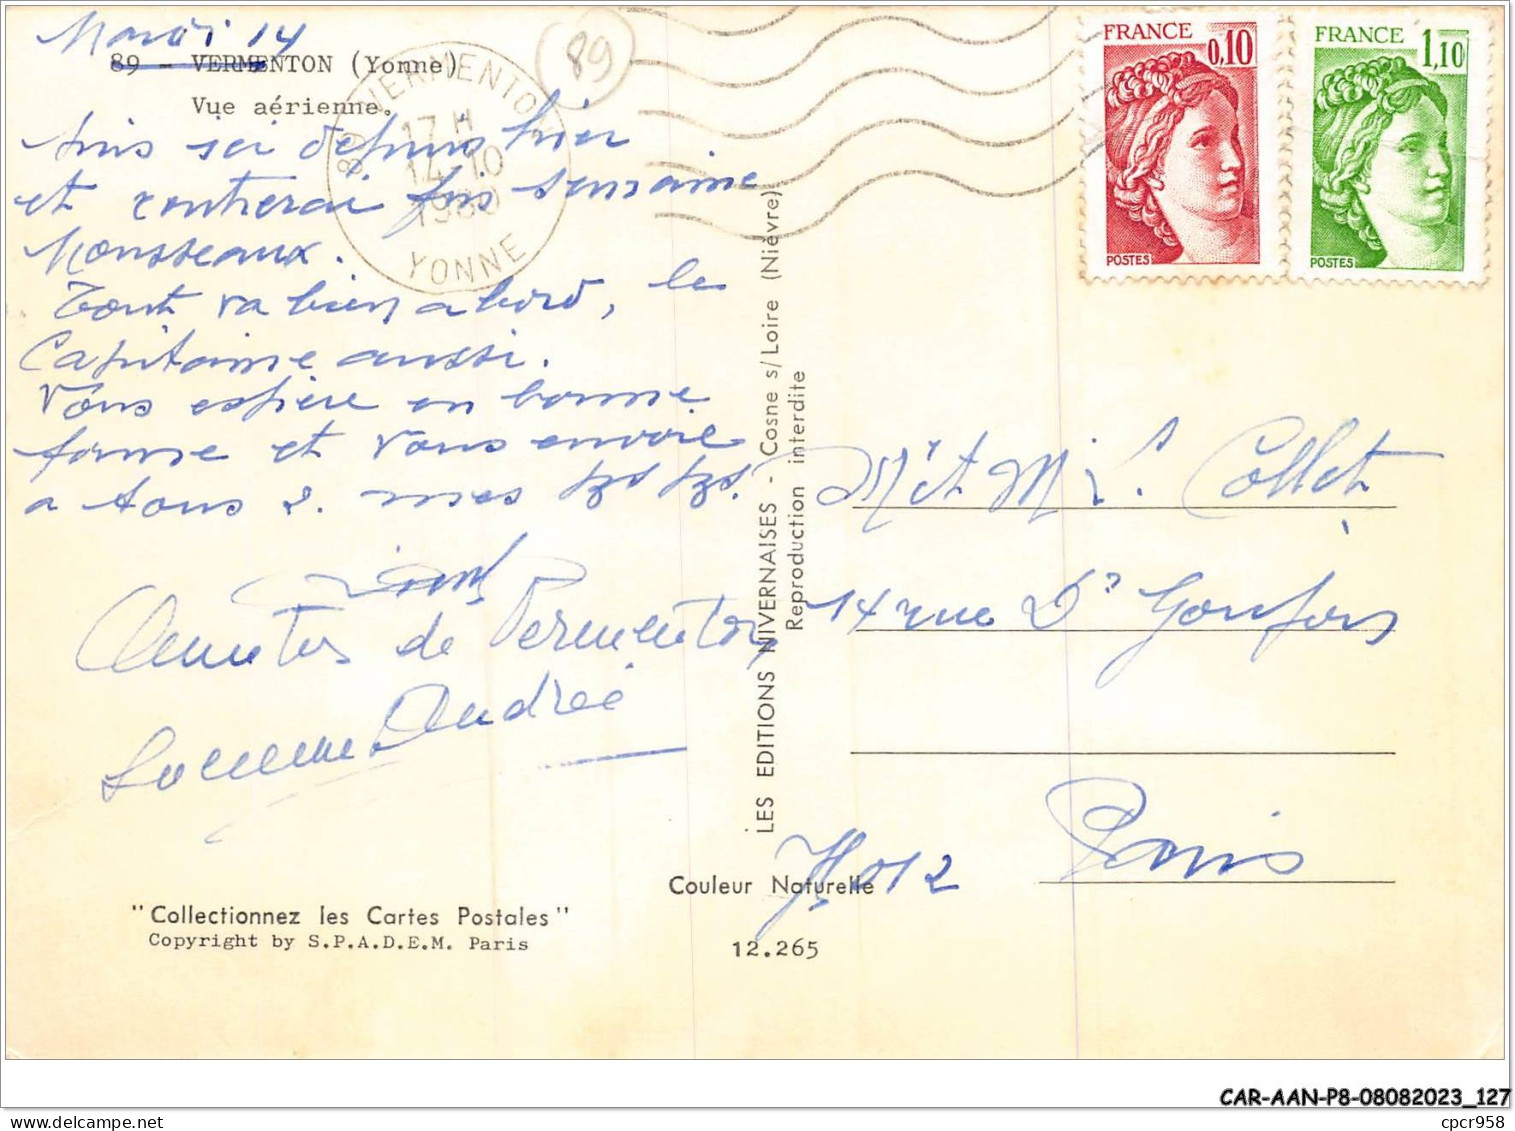 Mardi 14
89 - VERMENTON (Yonne)
Vue aérienne.
89
89 VERMENTON
17 H
14-10
1980
YONNE
FRANCE
0,10
POSTES
FRANCE
1,10
POSTES
suis ici depuis hier
et rentrerai fin semaine
Mousseaux.
Tout va bien a bord, le
Capitaine aussi.
Vous espère en bonne
forme et vous envoie
a tous 2. mes bzs bzs.
Amitiés de Vermenton
Lucienne Andrée
LES EDITIONS NIVERNAISES - Cosne s/Loire (Nièvre)
Reproduction interdite
Mr et Me L. Collet
14 rue Dr Goujon
75012
Paris
Couleur Naturelle
"Collectionnez les Cartes Postales"
Copyright by S.P.A.D.E.M. Paris
12.265
CAR-AAN-P8-08082023_127
cpcr958